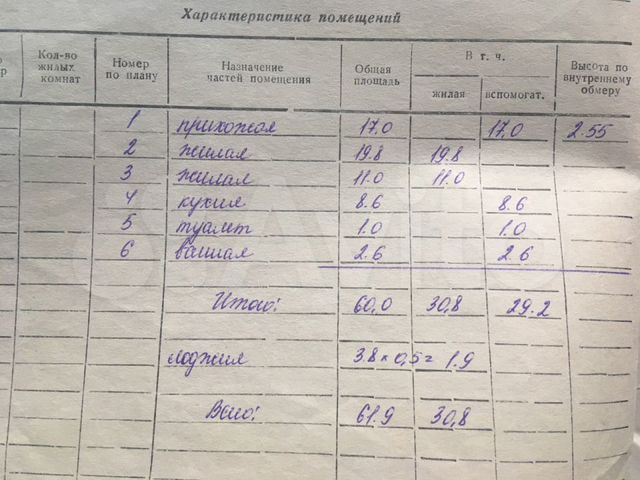 Характеристика помещений
Кол-во жилых комнат | Номер по плану | Назначение частей помещения | Общая площадь | В т. ч. | Высота по внутреннему обмеру
жилая | вспомогат.
1 | прихожая | 17.0 | 17.0 | 2.55
2 | жилая | 19.8 | 19.8
3 | жилая | 11.0 | 11.0
4 | кухня | 8.6 | 8.6
5 | туалет | 1.0 | 1.0
6 | ванная | 2.6 | 2.6
Итого: | 60,0 | 30,8 | 29.2
лоджия | 3.8 х 0,5 = 1.9
Всего: | 61.9 | 30,8